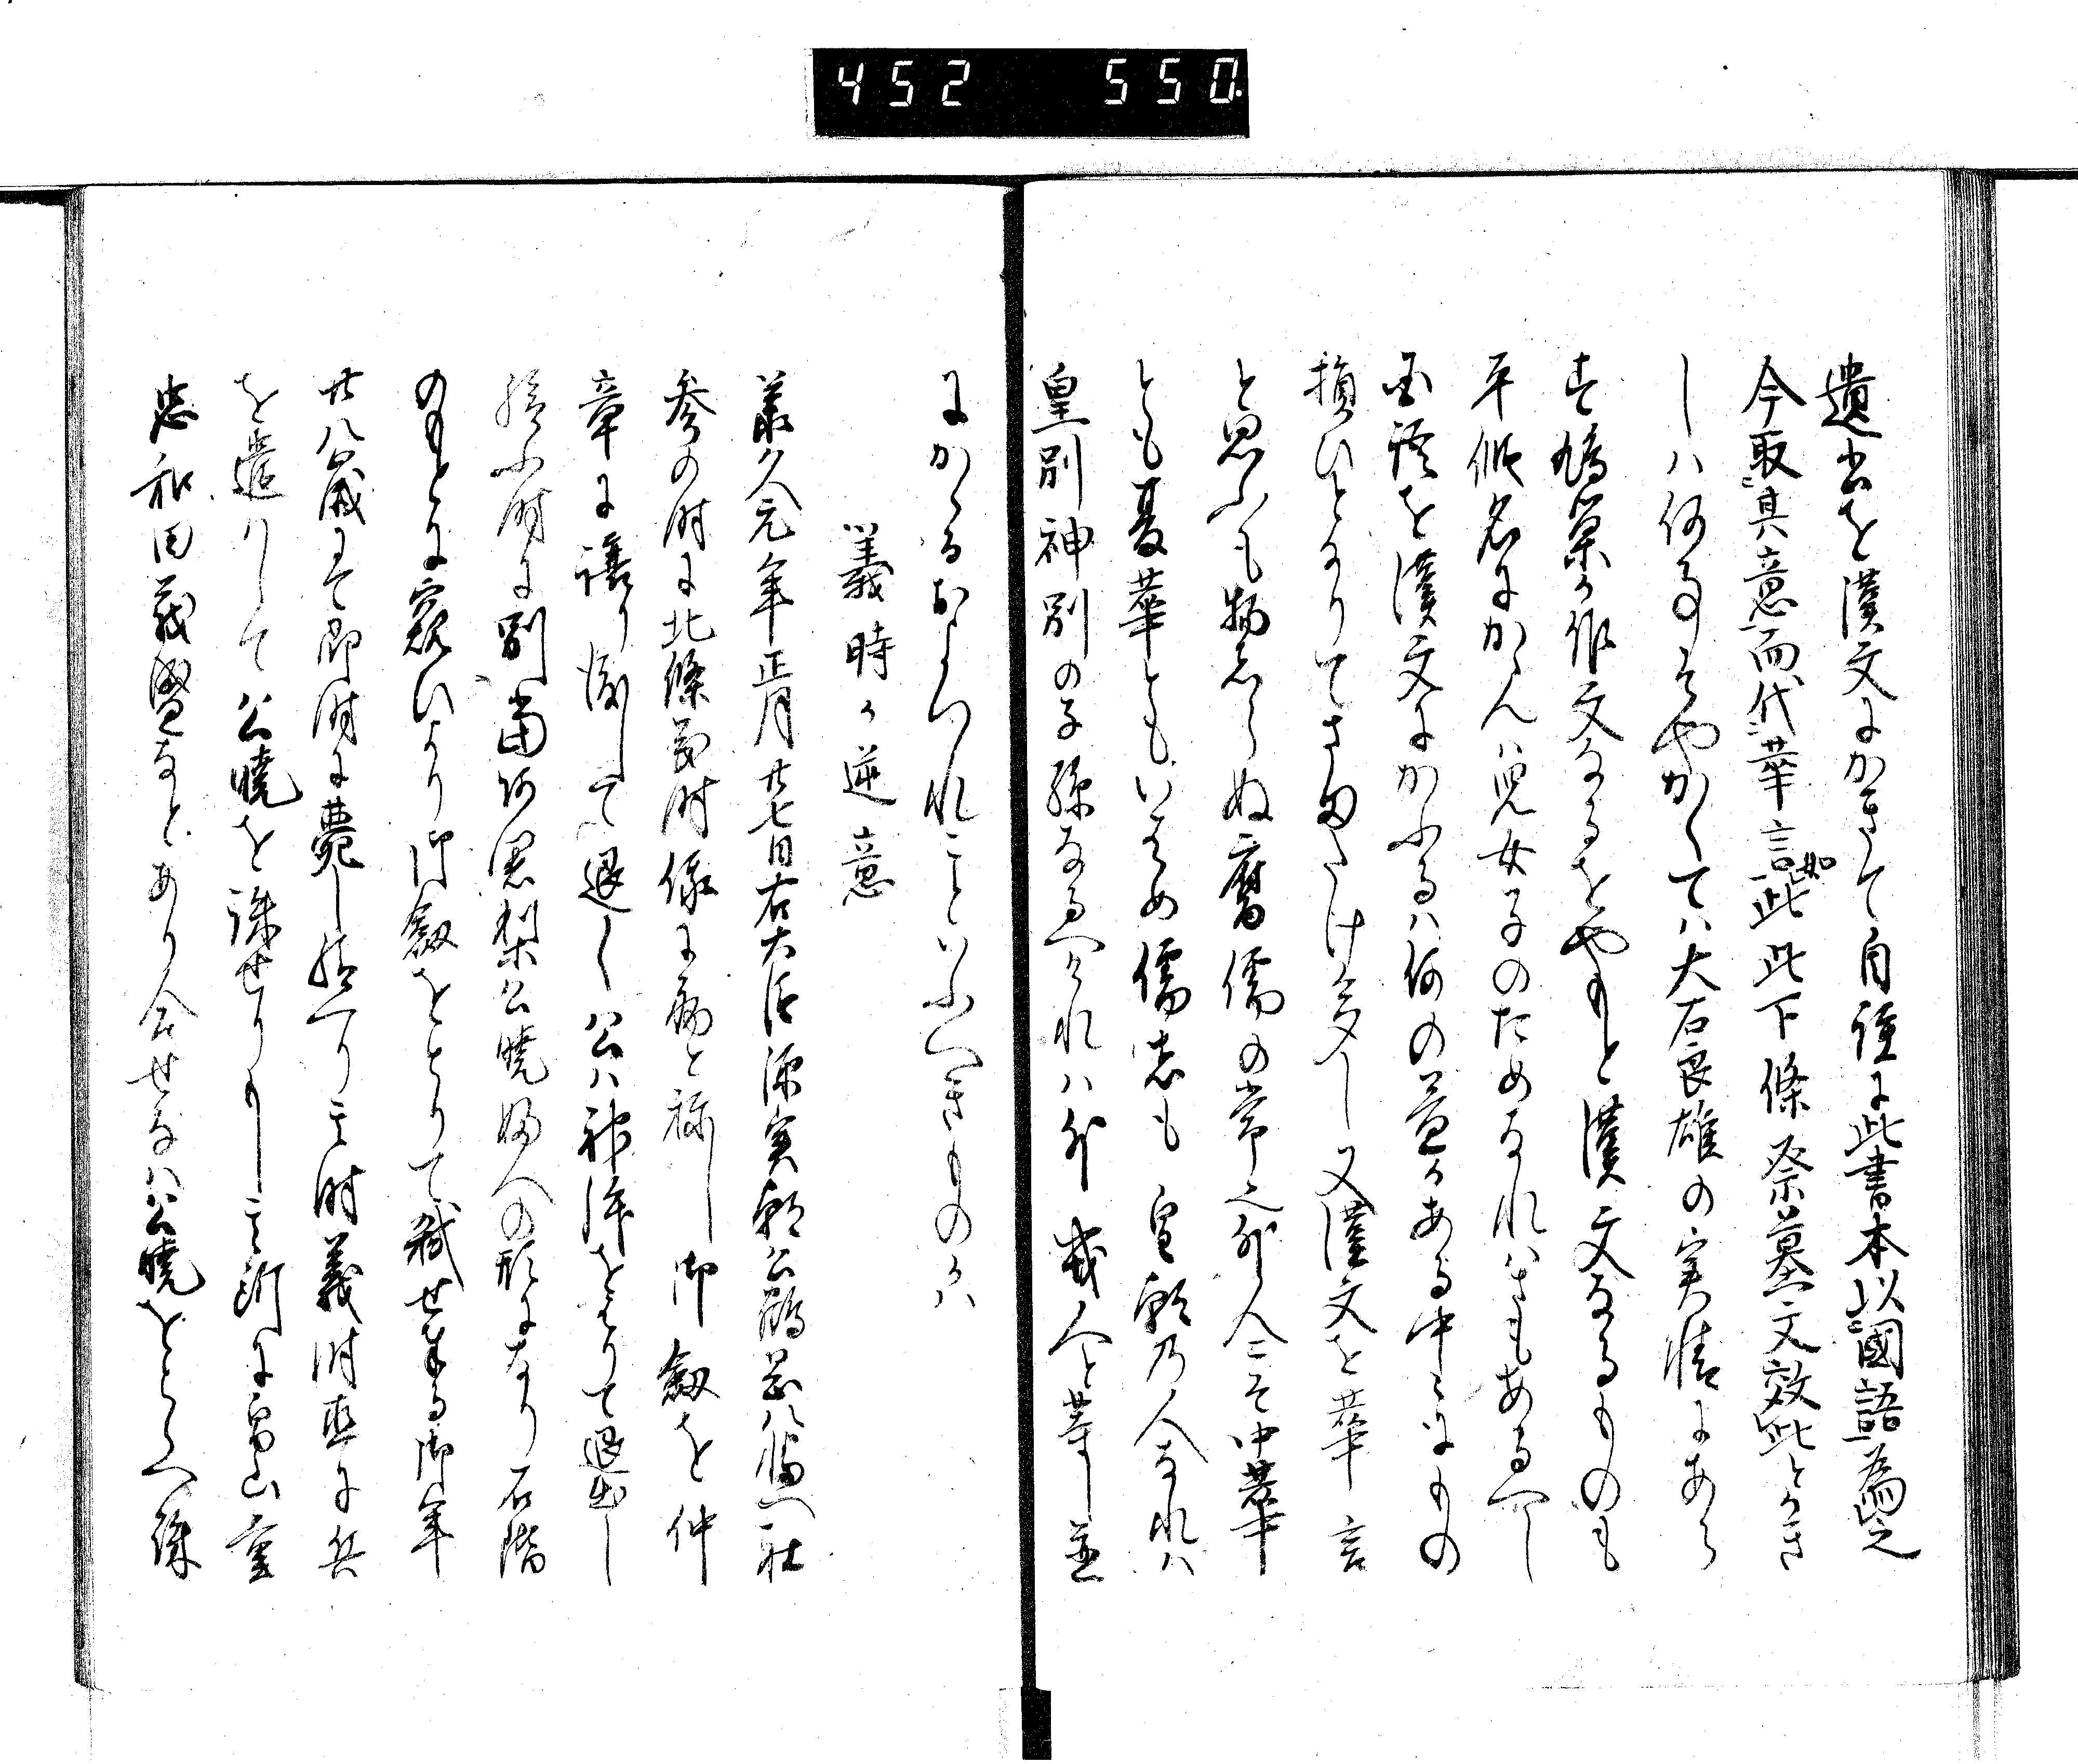 452 550
遺書を漢文にかきて自註に此書本以國語為之
今取其意而代華言如此此下條祭墓文效此とかき
しハ何事そやかくてハ大石良雄の実情にあら
す鳩巣か作文なるをやもと漢文なるものも
平假名にかかんハ児女子のためなれハさもあるへし
国語を漢文にかふるハ何の益かある中々にもの
損ひとなりてさまたけ多し又漢文を華言
と思ふも物しらぬ腐儒の常之外人こそ中華
とも夏華ともいはめ儒志も 皇朝乃人なれハ
皇別神別の子孫なるへけれハ外 戎人と華し並
にかかるおよつれことハいふへきものかハ
義時か逆意
兼久元年正月廿七日右大臣源実朝公鶴岡八幡へ社
参の時に北條義時俄に病と称し 御劔を仲
章に譲り渡して退く公ハ神拝をはりて退出し
給ふ時に別當阿闍梨公暁婦人の形になり石階
のもとに窺ひより御劔をとりて弑せ奉る御年
廿八歳にて即時に薨し給へり其時義時直に兵
を遣りして公暁を誅せりもし其所に畠山重
忠和田義盛なとあり合せなハ公暁をとらへ誅